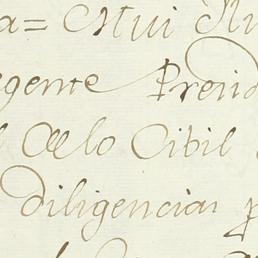 a = Mui Ilu
egente Presid
l de lo Cibil
diligencias p